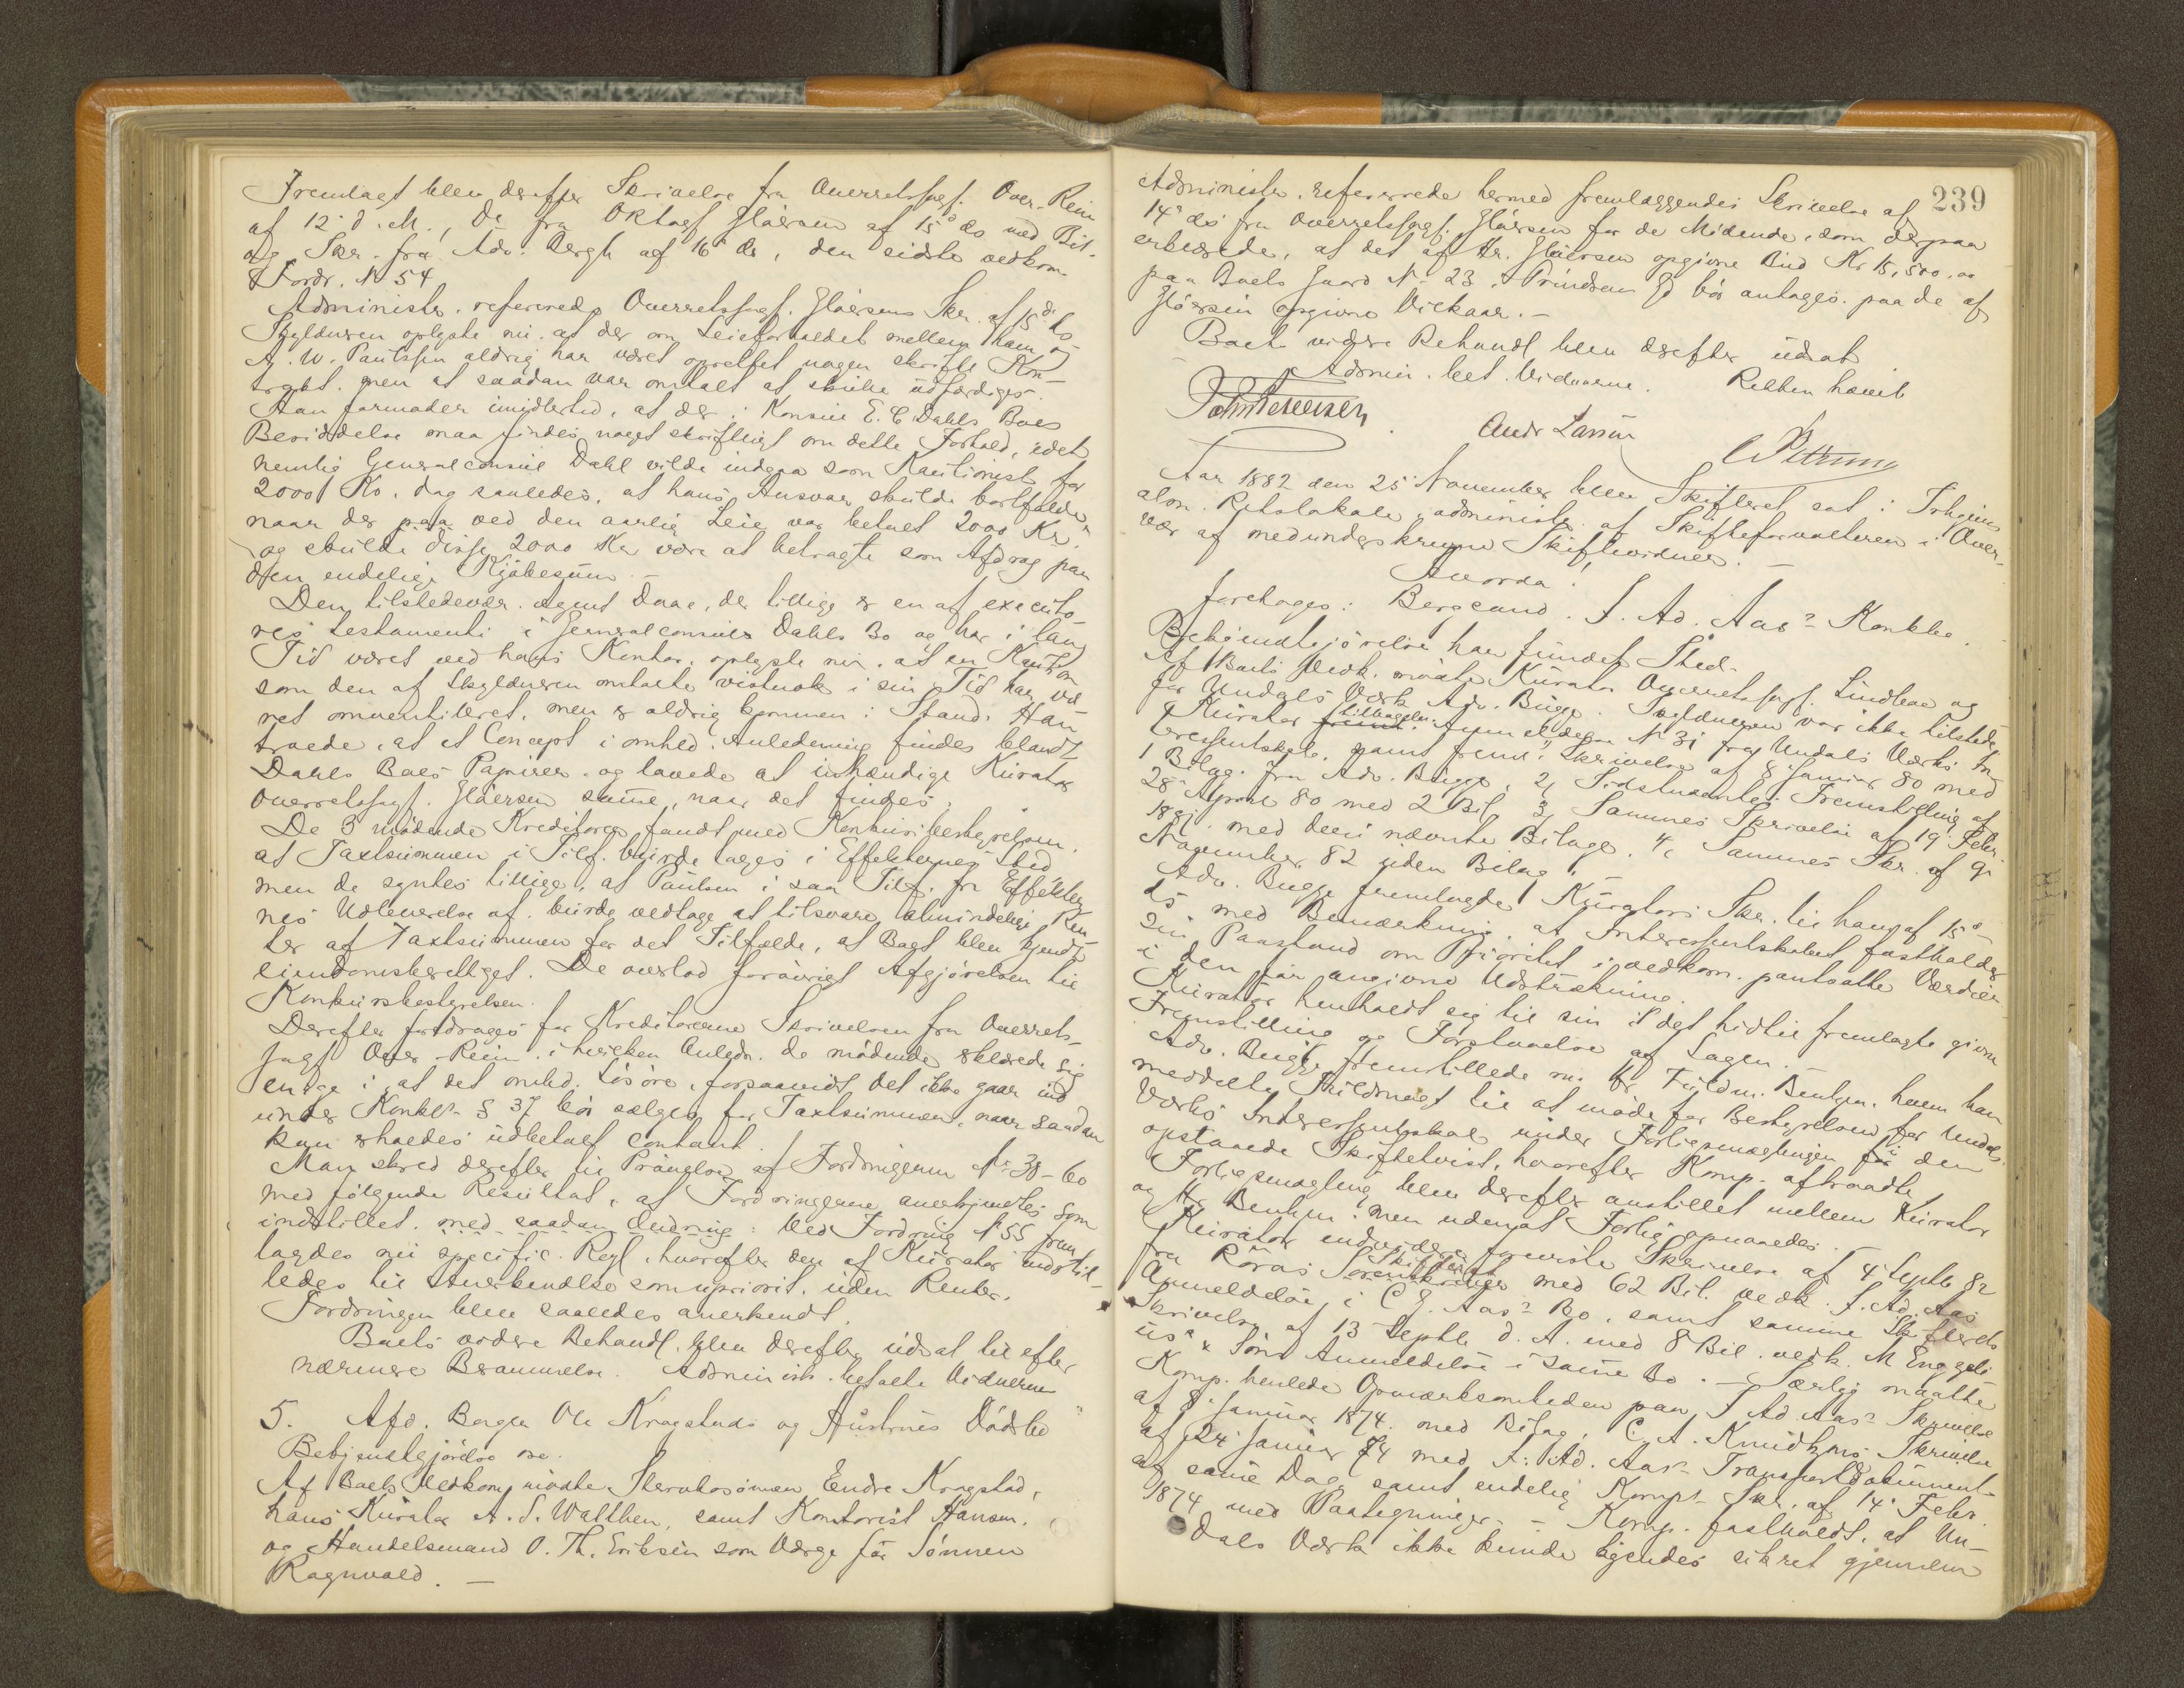 Fremlagt blev derefter Skrivelse fra Overretssagf. Over-Rein
af 12' d. M., De fra ORtsagf Gløersen af 15' ds med Bil.
og Skr. fra Adv. Bergh af 16' ds, den sidste vedkom.
Fordr. N 54
Administr. refererede Overretssagf. Gløersens Skr. af 15de ds
Skyldneren oplyste nu, at der om Leieforholdet mellem ham og
A. W. Paulssen aldrig har været oprettet nogen skriftl Kon-
trakt, men at saadan var omtalt at skulle udfærdiges.
Han formoder imidlertid, at der i Konsul E. C Dahls Boes
Besiddelse maa findes noget skriftligt om dette Forhold, idet
nemlig Generalconsul Dahl vilde indgaa som Kautionist for
2000 Kr. dog saaledes, at hans Ansvar skulde bortfalde,
naar der paa ved den aarlig Leie var betalt 2000 Kr.
og skulde disse 2000 Kr være at betragte som Afdrag paa
den endelige Kjøbesum. —
Den tilstedevær. Agent Daae, der tillige er en af executo
res testamenti i Generalconsul Dahls Bo og har i lang
Tid været ved hans Kontor, oplyste nu, at en Kaution
som den af Skyldneren omtalte vistnok i sin Tid har væ
ret omventileret, men er aldrig kommen i Stand. Han
troede, at et Concept i omhld. Anledning findes blandt
Dahls Boes Papirer og lovede at indhændige Kurator
Overretssagf. Gløersen samme, naar det findes.
De 3 mødende Kreditorer fandt med Konkursbestyrelsen,
at Taxtsummen i Tilf. burde tages i Effekternes Sted
men de syntes tillige, at Paulsen i saa Tilf. fra Effekter
nes Udleverelse af burde vedtage at tilsvare almindelige Ren
ter af Taxtsummen for det Tilfælde, at Boet blev kjendt
eiendomsberettiget. De overlod forøvrigt Afgjørelsen til
Konkursbestyrelsen.
Derefter foredroges for Kreditorerne Skrivelsen fra Overrets-
sagf Over-Rein, i hvilken Anledn. de mødende erklærede sig
enige i, at det omhld. Løsøre, forsaavidt det ikke gaar ind
under Konkl. § 37 bør sælges for Taxtsummen, naar saadan
kan erholdes udbetalt contant.
Man skred derefter til Prøvelse af Fordringerne No 38-60
med følgende Resultat, at Fordringerne anerkjendtes som
indstillet, med saadan Ændring: Ved Fordring N 55 frem
lagdes nu specific. Regl, hvorefter den af Kurator indstil-
ledes til Anerkendelse som uprivil. uden Renter.
Fordringen blev saaledes anerkendt.
Boets videre Behandl. blev derefter udsat til efter
nærmere Berammelse. Administr. betalte Vidnerne
5. Afd. Borger Ole Kragstads og Hustrues Dødsbo
Bekjendtgjørelse
Af Boets Vedkom. mødte Sterbosønnen Endre Kragstad,
hans Kurator A. S. Walthen, samt Kontorist Hansen,
og Handelsmand O. Th. Eriksen som Værge for Sønnen
Ragnvald. —
239
Administr. refererede hermed fremlæggendes Skrivelse af
14' ds fra Overretssagf. Gløersen for de Mødende, som derpaa
erklærede, at det af Hr. Gløersen opgivne Bud Kr 15,500.00
paa Boets Gaard No 23 i Prindsens Gd bør antages paa de af
Gløersen opgivne Vilkaar. —
Boets videre Behandl blev derefter udsat
Admin. bet. Vidnerne. Retten hævet
Andr Larsen
Aar 1882 den 25 November blev Skifteret sat i Trhjems
alm. Retslokale, administr. af Skifteforvalteren i Over-
vær af medunderskrevne Skiftevidner. —
Hvorda!
foretages: Bergcand. J. Ad. Aas's Konkbo.
Bekjendtgjørelse har fundet Sted.
Af Boets Vedk. mødte Kurator Overretssagf. Lindboe og
for Undals Værk Adv. Bugge. Skyldneren var ikke tilstede,
Kurator fremlagde tilbagelev. N 31 fra Undals Værks In
teressentskab, samt freml. 1, Skrivelse af 8 Januar 80 med
1 Bilag fra Adv. Bugge, 2, Sidstnævntes Fremstilling af
28 April 80 med 2 Bil, 3, Sammes Skrivelse af 19 Febr.
1881 med deri nævnte Bilage. 4, Sammes Skr. af 9
November 82 uden Bilag. —
Adv. Bugge fremlagde Kurators Skr. til ham af 15'
ds med Bemærkning, at Interessentskabet fastholder
sin Paastand om Prioritet i vedkom. pantsatte Værdier
i den før angivne Udstrækning.
Kurator henholdt sig til sin i det hidtil fremlagte givne
Fremstilling og Forstaaelse af Sagen. —
Adv. Bugge fremstillede nu Hr. Fuldm. Bentzen, hvem han
meddelte Fuldmagt til at møde for Bestyrelsen for Undals
Værks Interessentskab under Forligsmæglingen i den
opstaaede Skiftetvist, hvorefter Komp. aftraadte
Forligsmægling blev derefter anstillet mellem Kurator
og Hr Bentzen, men uden at Forlig opnaaedes. —
Kurator endvidere foreviste Skrivelse af 4 Septb 82
fra Röros Skifteret med 62 Bil. vedk. J. Ad. Aas
Anmeldelse i C J. Aas's Bo, samt samme Skifterets
Skrivelse af 13 Septb d. A. med 8 Bil. vedk. M Engzeli
us' & Søns Anmeldelse i samme Bo. — Særlig maatte
Komp. henlede Opmærksomheden paa J. Ad. Aas's Skrivelse
af 8 Januar 1874 med Bilag, C. A. Knudtzons Skrivelse
af 24 Januar 74 med J. Ad. Aas's Transportdokument
af samme Dag, samt endelig Komps Skr. af 14 Febr.
1874 med Paategninger. — Komp. fastholdt, at Un-
dals Værk ikke kunde kjendes sikret gjennem